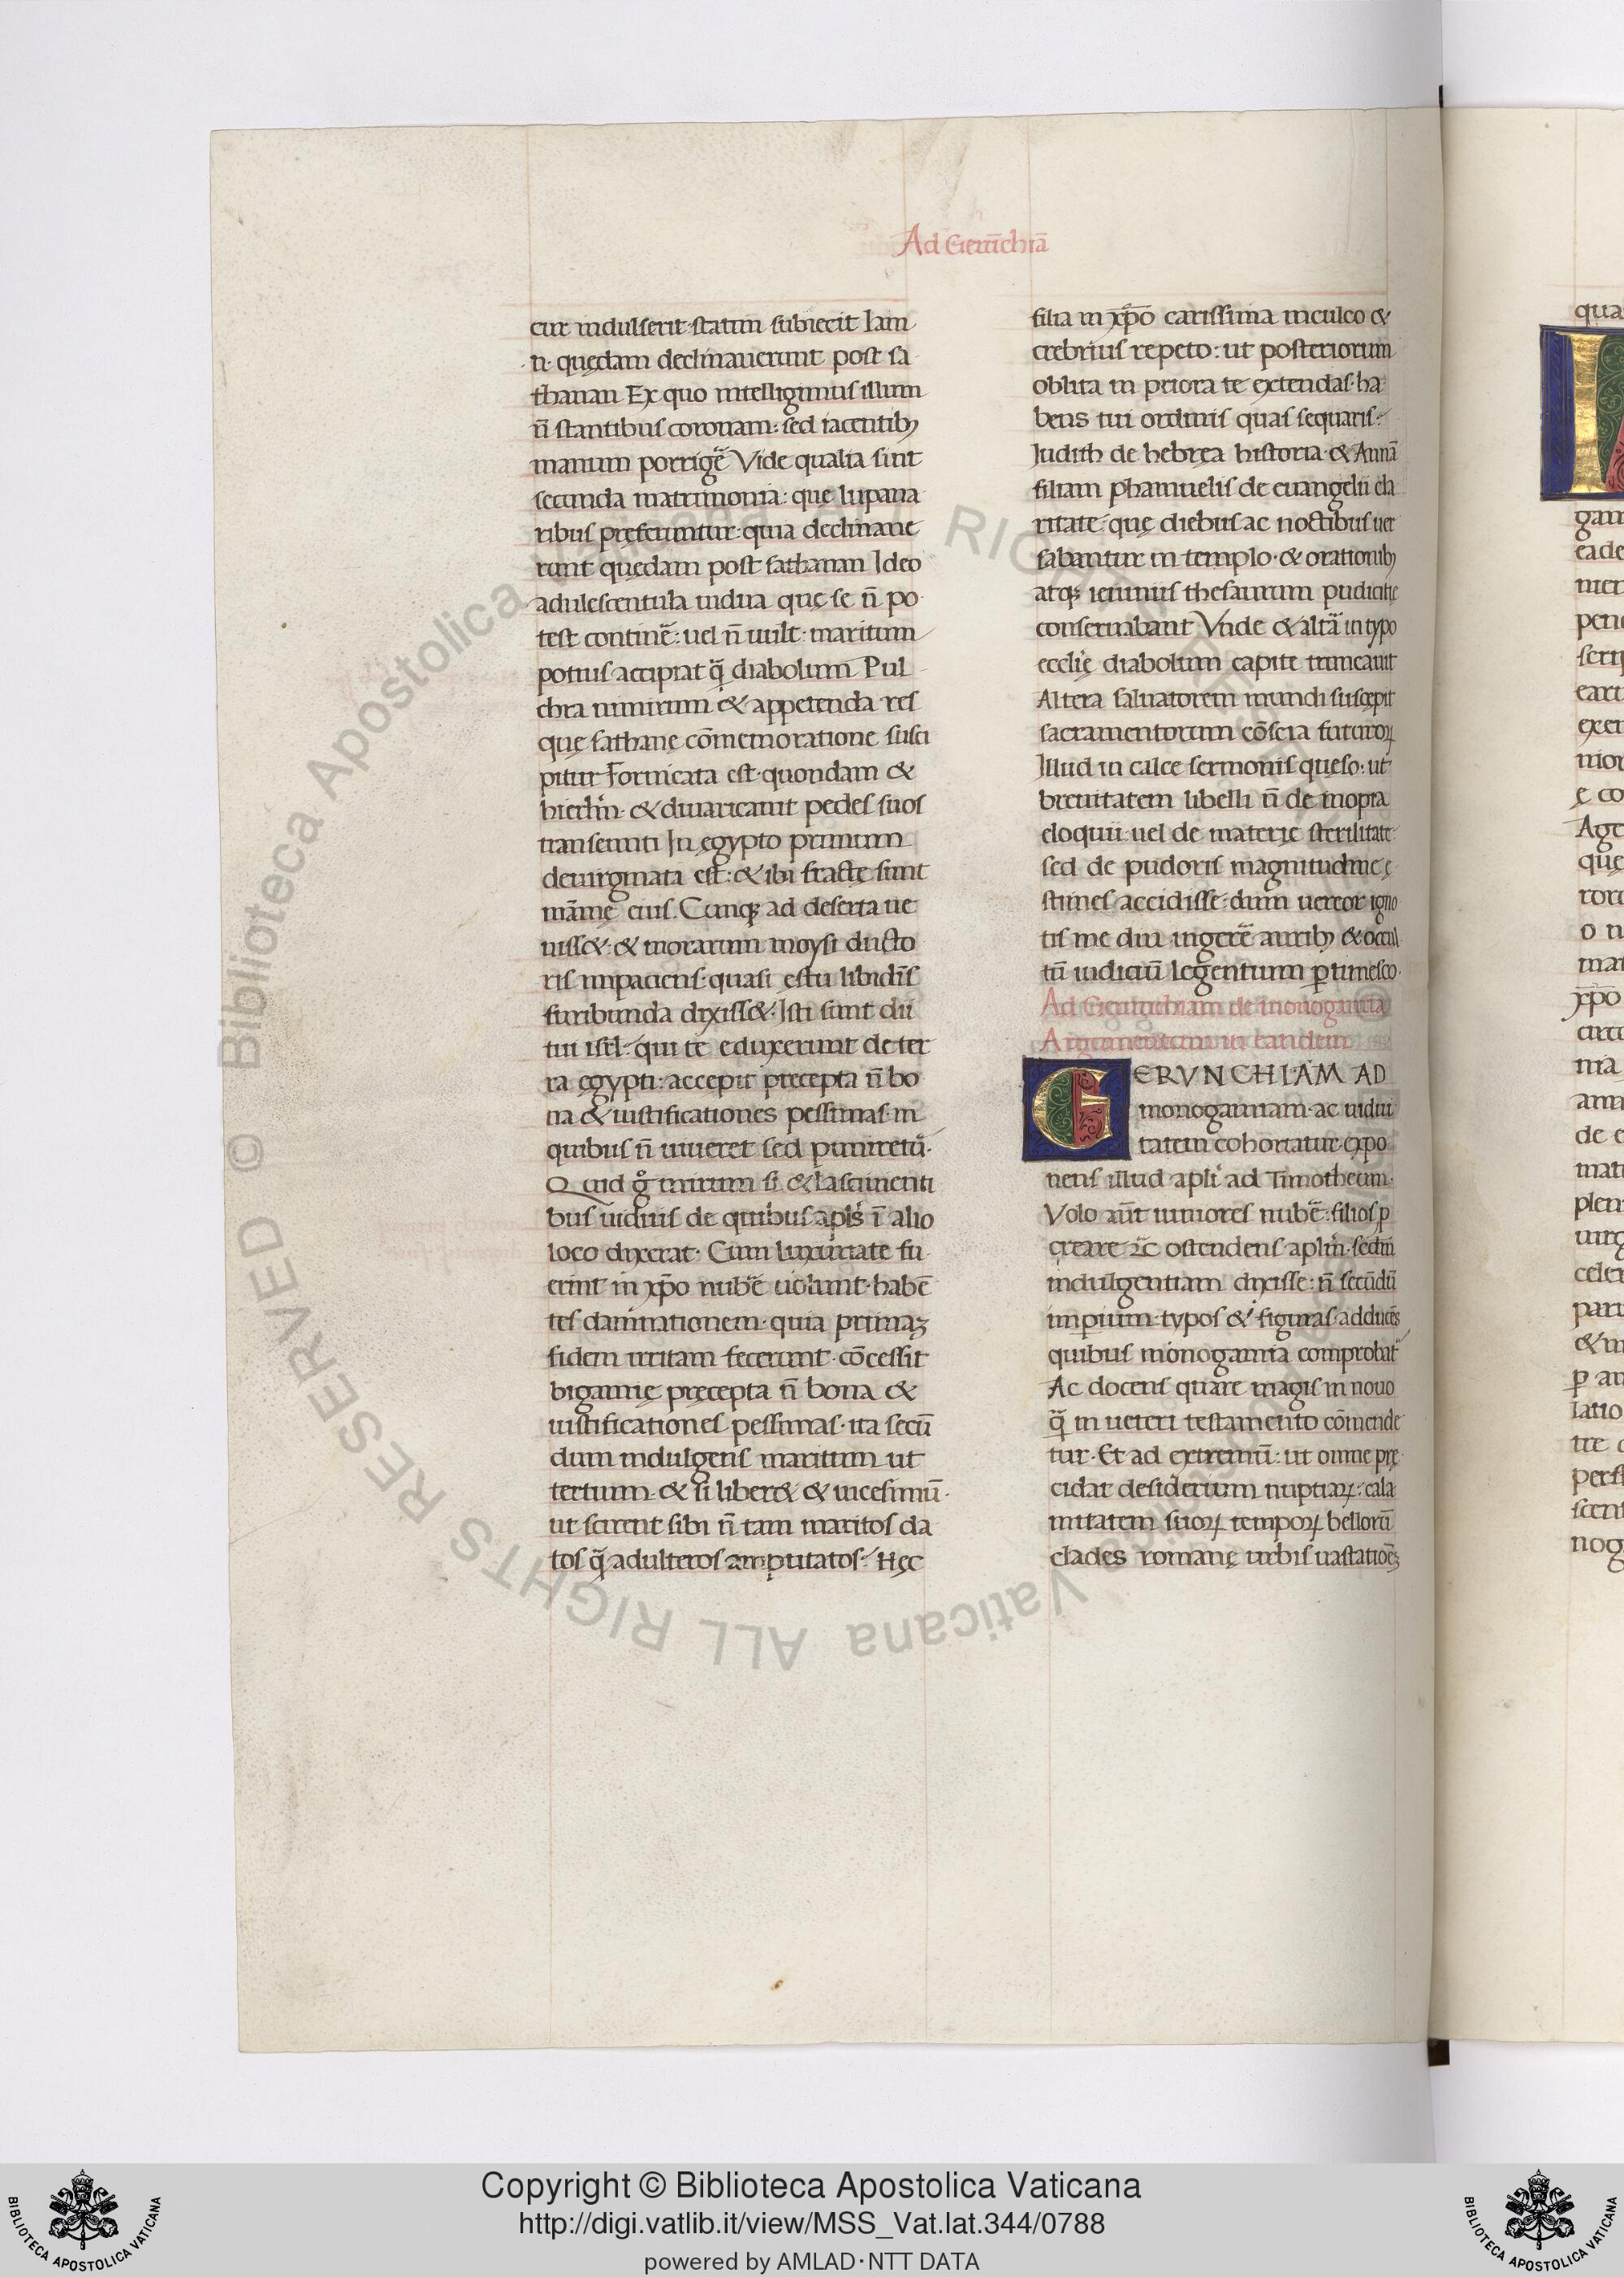 Ad Gerūchiā
cur indulserit·statim subiecit Iam
n̄· quędam declinauerunt post sa
thanan Ex quo intelligimus illum
n̄ stantibus coronam: sed iacentibꝫ
manum porrigē Vide qualia sint
secunda matrimonia: que lupana
ribus pręferuntur·quia declinaue
runt quędam post sathanan Ideo
adulescentula uidua quę se n̄ po
test continē: uel n̄ uult· maritum
potius accipiat q̄ diabolum Pul
chra nimirum & appetenda res
quę sathanę cōmemoratione susci
pitur Fornicata est·quondam &
hierlm̄· & diuaricauit pedes suos
transeunti In ęgypto primum
deuirginata est: & ibi fractę sunt
māmę eius. Cunqꝫ ad deserta ue
niss&·& morarum moysi ducto
ris impaciens·quasi ęstu libidīs
furibunda dixiss&· Isti sunt dii
tui isrl̄· qui te eduxerunt de ter
ra ęgypti: accepit pręcepta n̄ bo
na & iustificationes pessimas·in
quibus n̄ uiueret sed puniretū·
Quid g̊ mirum si & lasciuienti
bus uiduis de quibus apl̄s ī alio
loco dixerat· Cum luxuriate fu
erint in xp̄o nubē uolunt·habē
tes damnationem·quia primaꝫ
fidem irritam fecerunt·cōcessit
bigamię pręcepta n̄ bona &
iustificationes pessimas·ita secū
dum indulgens maritum ut
tertium·& si liber& & uicesimū·
ut scirent sibi n̄ tam maritos da
tos q̄ adulteros amputatos· Hęc
filia in xp̄o carissima inculco &
crebrius repeto: ut posteriorum
oblita in priora te extendas·ha
bens tui ordinis quas sequaris·
Iudith de hebręa historia·& Annā
filiam phamuelis de euangelii cla
ritate·quę diebus ac noctibus uer
sabantur in templo·& orationibꝫ
atqꝫ ieiuniis thesaurum pudicitię
conseruabant Vnde & altā in typo
ecclię diabolum capite truncauit
Altera saluatorem mundi suscępit
sacramentorum cōscia futuroꝝ
Illud in calce sermonis quęso: ut
breuitatem libelli n̄ de inopia
eloquii uel de materię sterilitate·
sed de pudoris magnitudine ę
stimes accidisse·dum uereor igno
tis me diu ingerē auribꝫ & occul
tū iudiciū legentum ꝑtimesco·
Ad Geruncihiam de monogamia
Argumentum in eandem
GERVNCHIAM AD
monogamiam·ac uidui
tatem cohortatur·expo
nens illud apli ad Timotheum·
Volo aūt iuniores nubē·filios p
creare ⁊c̄ ostendens aplm̄·sedm̄
indulgentiam dixisse: n̄ secūdū
imꝑium·typos & figuras·adducēs
quibus monogamia comprobat̄
Ac docens quare magis in nouo
q̄ in ueteri testamento cōmende
tur· Et ad extremū: ut omne prę
cidat desiderium nuptiaꝝ: cala
mitatem suoꝝ tempoꝝ bellorū
clades romanę urbis uastatiōeꝫ
Copyright © Biblioteca Apostolica Vaticana
http://digi.vatlib.it/view/MSS_Vat.lat.344/0788
powered by AMLAD·NTT DATA